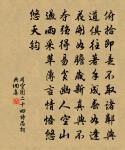 俯拾即是不取諸鄰俱
道適往著手成春如逢
花開如瞻歲新真與不
奪強得易貧幽人空山
過雨采蘋薄言情悟悠
悠天鈞
司空圖二十四詩品